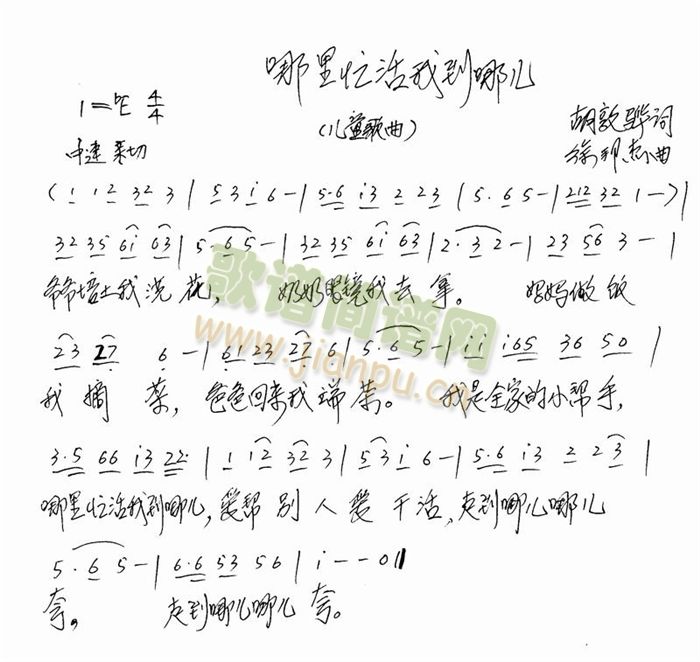 哪里忙活我到哪儿
1=ᵇE 4/4
(儿童歌曲)
胡敦骅词
中速 亲切
徐邦杰曲
( 1 12 32 3 | 5 3 i 6 - | 5·6 i3 2 23 | 5·6 5 - | 212 32 1 - ) |
32 35 6i 63 | 5·6 5 - | 32 35 6i 63 | 2·3 2 - | 23 56 3 - |
爷爷培土我浇花, 奶奶眼镜我去拿。 妈妈做饭
23 27 6 - | 61 23 27 6 | 5·6 5 - | ii i65 36 50 |
我摘菜, 爸爸回来我端茶。 我是全家的小帮手,
3·5 66 i3 22· | 1 12 32 3 | 53 i 6 - | 5·6 i3 2 23 |
哪里忙活我到哪儿, 爱帮别人爱干活, 走到哪儿哪儿
5·6 5 - | 6·6 53 56 | i - - 0 ‖
夸, 走到哪儿哪儿夸。
歌谱简谱网
www.jianpu.cn